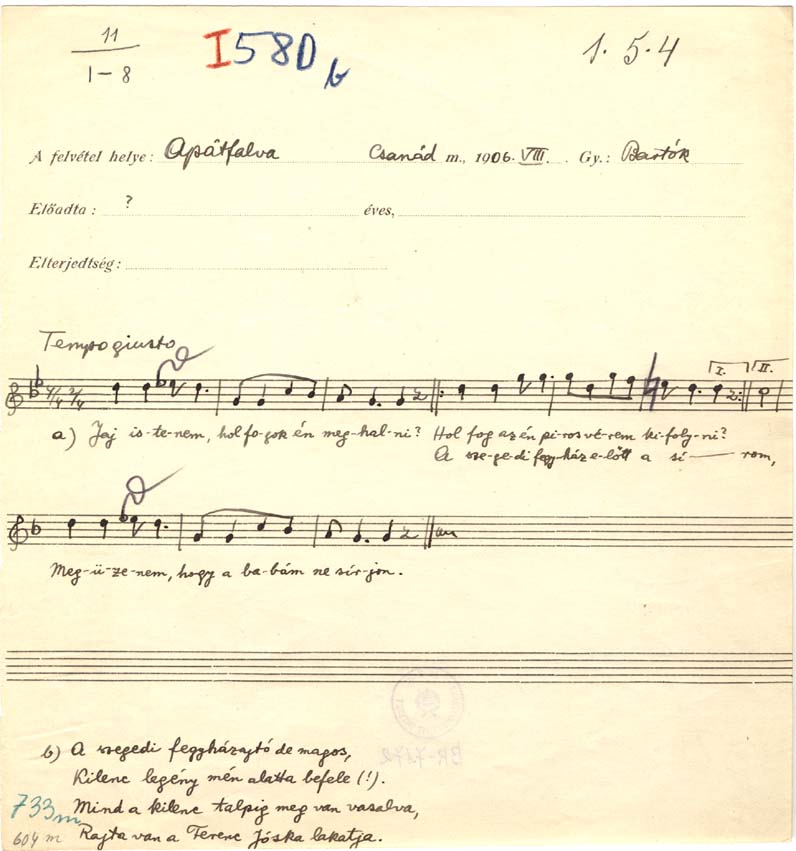 11
1-8
I 58D b
1. 5. 4
A felvétel helye: Apátfalva Csanád m., 1906. VIII. Gy.: Bartók
Előadta: ? éves,
Elterjedtség:
Tempo giusto
4/4 3/4
I. II.
a) Jaj is-te-nem, hol fo-gok én meg-hal-ni? Hol fog az én pi-ros vé-rem ki-foly-ni?
A sze-ge-di fegy-ház e-lőtt a sí — rom,
Meg-ü-ze-nem, hogy a ba-bám ne sír-jon.
BR-7172
b) A szegedi fegyházajtó de magos,
Kilenc legény mén alatta befele (!).
733 m Mind a kilenc talpig meg van vasalva,
604 m Rajta van a Ferenc Jóska lakatja.